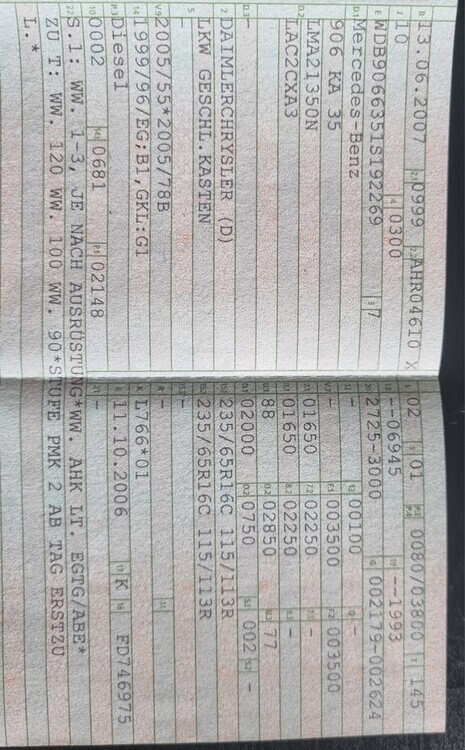 B 13.06.2007 2.1 0999 2.2 AHR04610 X
J 10 4 0300
E WDB9066351S192269 3 7
D.1 Mercedes-Benz
906 KA 35
D.2 LMA21350N
LAC2CXA3
D.3 -
2 DAIMLERCHRYSLER (D)
LKW GESCHL.KASTEN
5 -
V.9 2005/55*2005/78B
14 1999/96/EG;B1,GKL:G1
P.3 Diesel
10 0002 14.1 0681 P.1 02148
22 S.1: WW. 1-3, JE NACH AUSRÜSTUNG*WW. AHK LT. EGTG/ABE*
ZU T: WW. 120 WW. 100 WW. 90*STUFE PMK 2 AB TAG ERSTZU
L.*
L 02 9 01 P.2/P.4 0080/03800 T 145
18 --06945 19 --1993
20 2725-3000 G 002179-002624
12 - 13 00100 Q -
V.7 - F.1 003500 F.2 003500
7.1 01650 7.2 02250 7.3 -
8.1 01650 8.2 02250 8.3 -
U.1 88 U.2 02850 U.3 77
O.1 02000 O.2 0750 S.1 002 S.2 -
15.1 235/65R16C 115/113R
15.2 235/65R16C 115/113R
15.3 -
R - 11 -
K L766*01
6 11.10.2006 17 K 16 FD746975
21 -